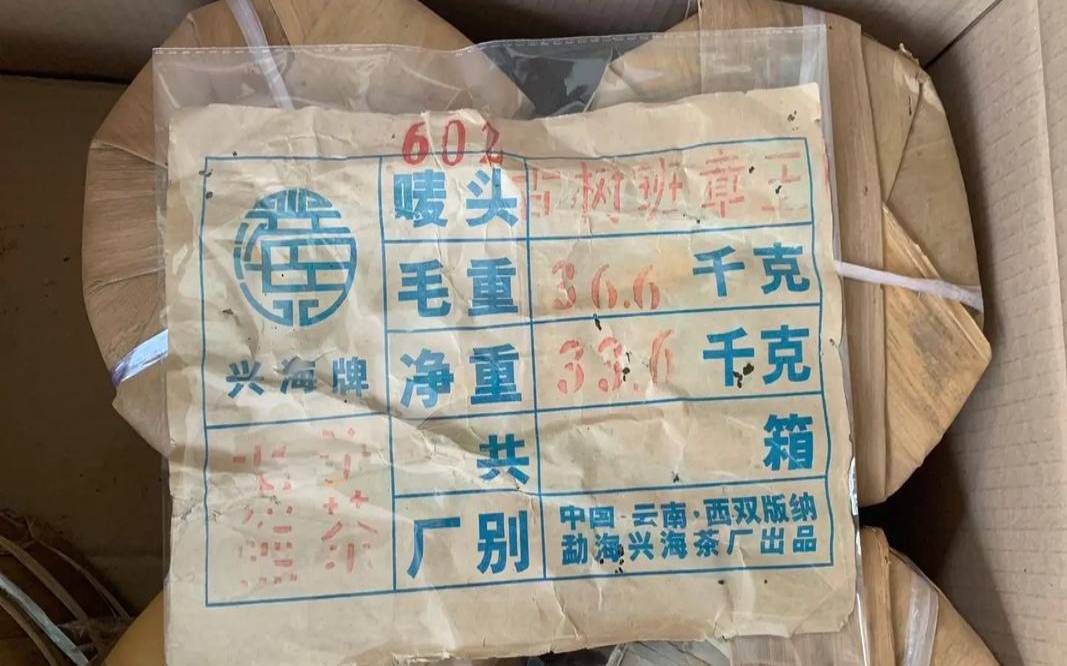 602
唛头 古树班章王
毛重 36.6 千克
兴海牌
净重 33.6 千克
共 箱
厂别 中国·云南·西双版纳
勐海兴海茶厂出品